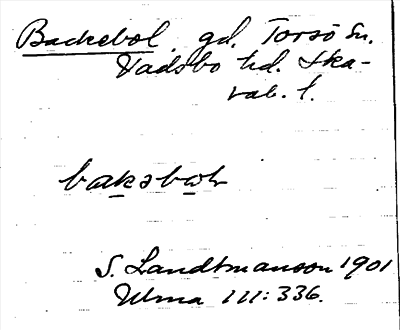 Backebol, gd. Torsö sn.
Vadsbo hd. Ska-
rab. l.
bakəbɷl
S. Landtmanson 1901
Ulma 111:336.